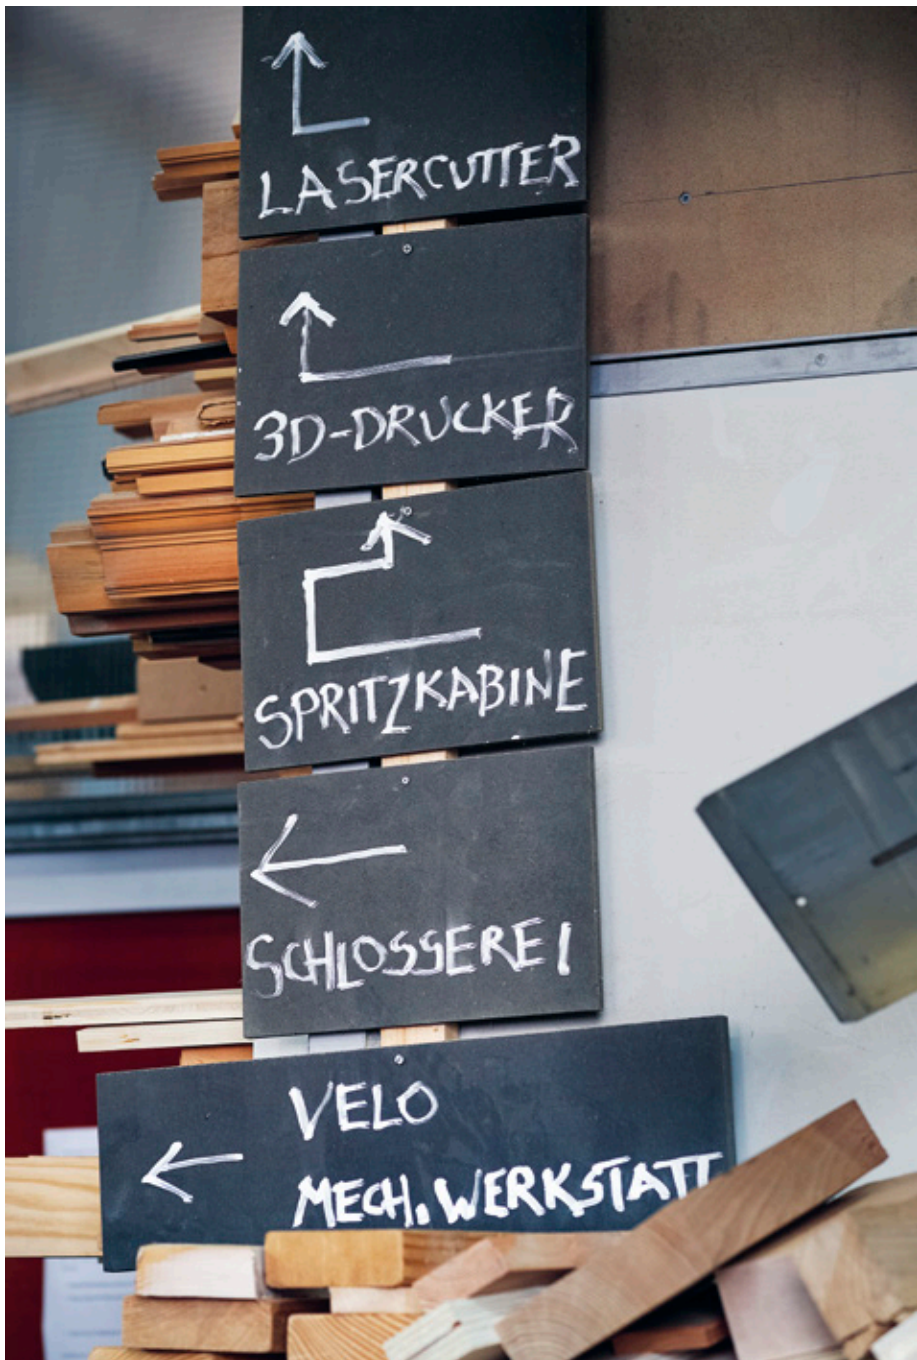 LASERCUTTER
3D-DRUCKER
SPRITZKABINE
SCHLOSSEREI
VELO
MECH. WERKSTATT